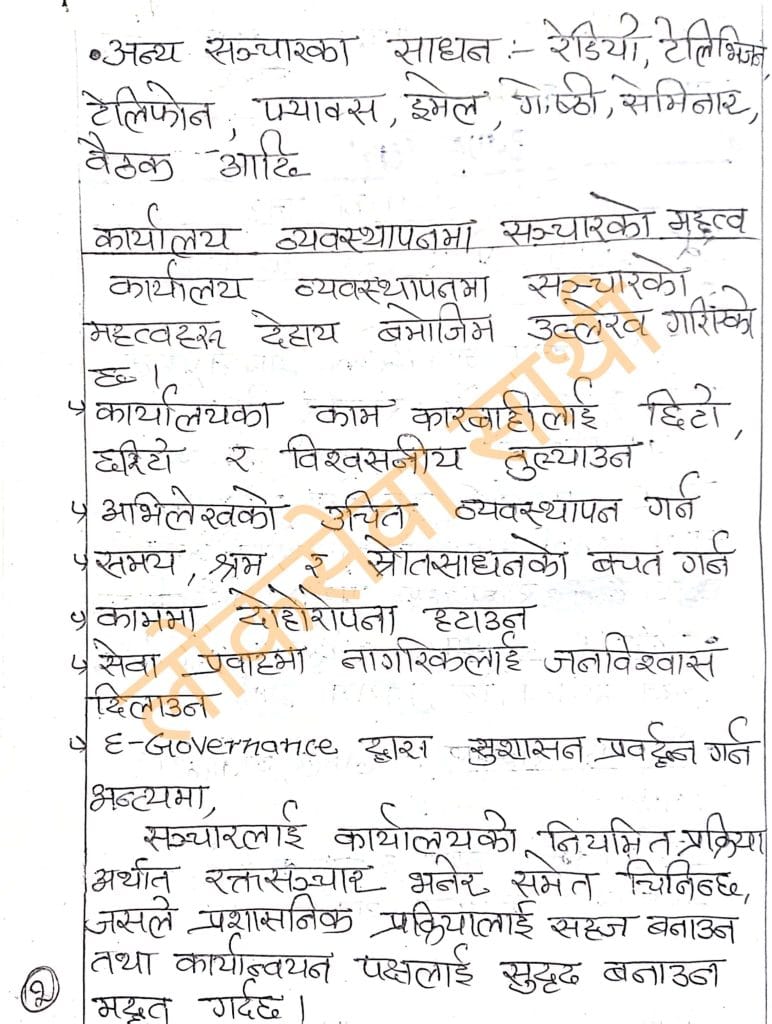 •अन्य सञ्चारका साधन :- रेडियो, टेलिभिजन,
टेलिफोन, फ्याक्स, इमेल, गोष्ठी, सेमिनार,
बैठक आदि
कार्यालय व्यवस्थापनमा सञ्चारको महत्व
कार्यालय व्यवस्थापनमा सञ्चारको
महत्वहरू देहाय बमोजिम उल्लेख गरिएको
छ।
कार्यालयका काम कारबाहीलाई छिटो,
छरिटो र विश्वसनीय तुल्याउन
अभिलेखको उचित व्यवस्थापन गर्न
समय, श्रम र स्रोतसाधनको बचत गर्न
काममा दोहोरोपना हटाउन
सेवा प्रवाहमा नागरिकलाई जनविश्वास
दिलाउन
E-Governance द्वारा सुशासन प्रवर्द्धन गर्न
अन्त्यमा,
सञ्चारलाई कार्यालयको नियमित प्रक्रिया
अर्थात रक्तसञ्चार भनेर समेत चिनिन्छ,
जसले प्रशासनिक प्रक्रियालाई सहज बनाउन
तथा कार्यान्वयन पक्षलाई सुदृढ बनाउन
मद्दत गर्दछ।
२
लोकसेवा साथी